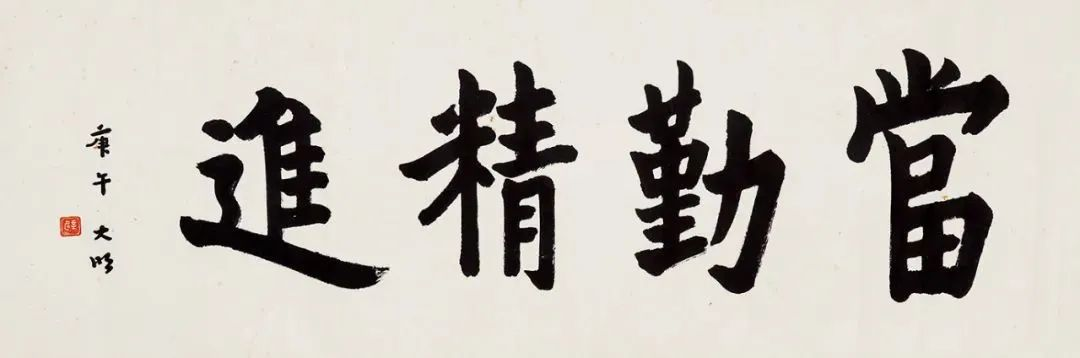 當勤精進
庚午 大